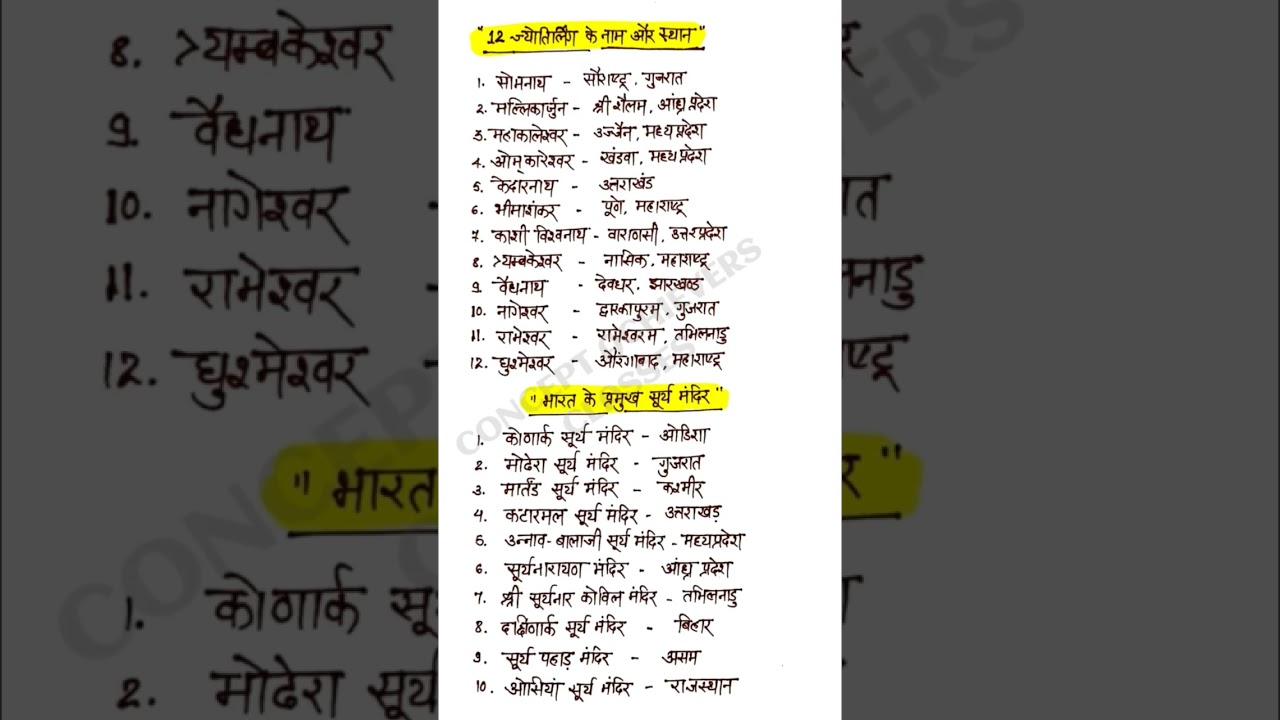 "12 ज्योतिर्लिंग के नाम और स्थान"
1. सोमनाथ - सौराष्ट्र, गुजरात
2. मल्लिकार्जुन - श्री शैलम, आंध्र प्रदेश
3. महाकालेश्वर - उज्जैन, मध्य प्रदेश
4. ओम्कारेश्वर - खंडवा, मध्य प्रदेश
5. केदारनाथ - उत्तराखंड
6. भीमाशंकर - पूणे, महाराष्ट्र
7. काशी विश्वनाथ - वाराणसी, उत्तर प्रदेश
8. त्र्यम्बकेश्वर - नासिक, महाराष्ट्र
9. वैद्यनाथ - देवघर, झारखण्ड
10. नागेश्वर - द्वारकापुरम, गुजरात
11. रामेश्वर - रामेश्वरम, तमिलनाडु
12. घुश्मेश्वर - औरंगाबाद, महाराष्ट्र
"भारत के प्रमुख सूर्य मंदिर"
1. कोणार्क सूर्य मंदिर - ओडिशा
2. मोढेरा सूर्य मंदिर - गुजरात
3. मार्तंड सूर्य मंदिर - कश्मीर
4. कटारमल सूर्य मंदिर - उत्तराखड़
5. उन्नाव-बालाजी सूर्य मंदिर - मध्यप्रदेश
6. सूर्यनारायण मंदिर - आंध्र प्रदेश
7. श्री सूर्यनार कोविल मंदिर - तमिलनाडु
8. दक्षिणार्क सूर्य मंदिर - बिहार
9. सूर्य पहाड़ मंदिर - असम
10. ओसियां सूर्य मंदिर - राजस्थान
CONCEPT ACHIEVERS
CLASSES
8. त्र्यम्बकेश्वर
9. वैद्यनाथ
10. नागेश्वर -
11. रामेश्वर -
12. घुश्मेश्वर -
"भारत
1. कोणार्क सू
2. मोढेरा सूर्य